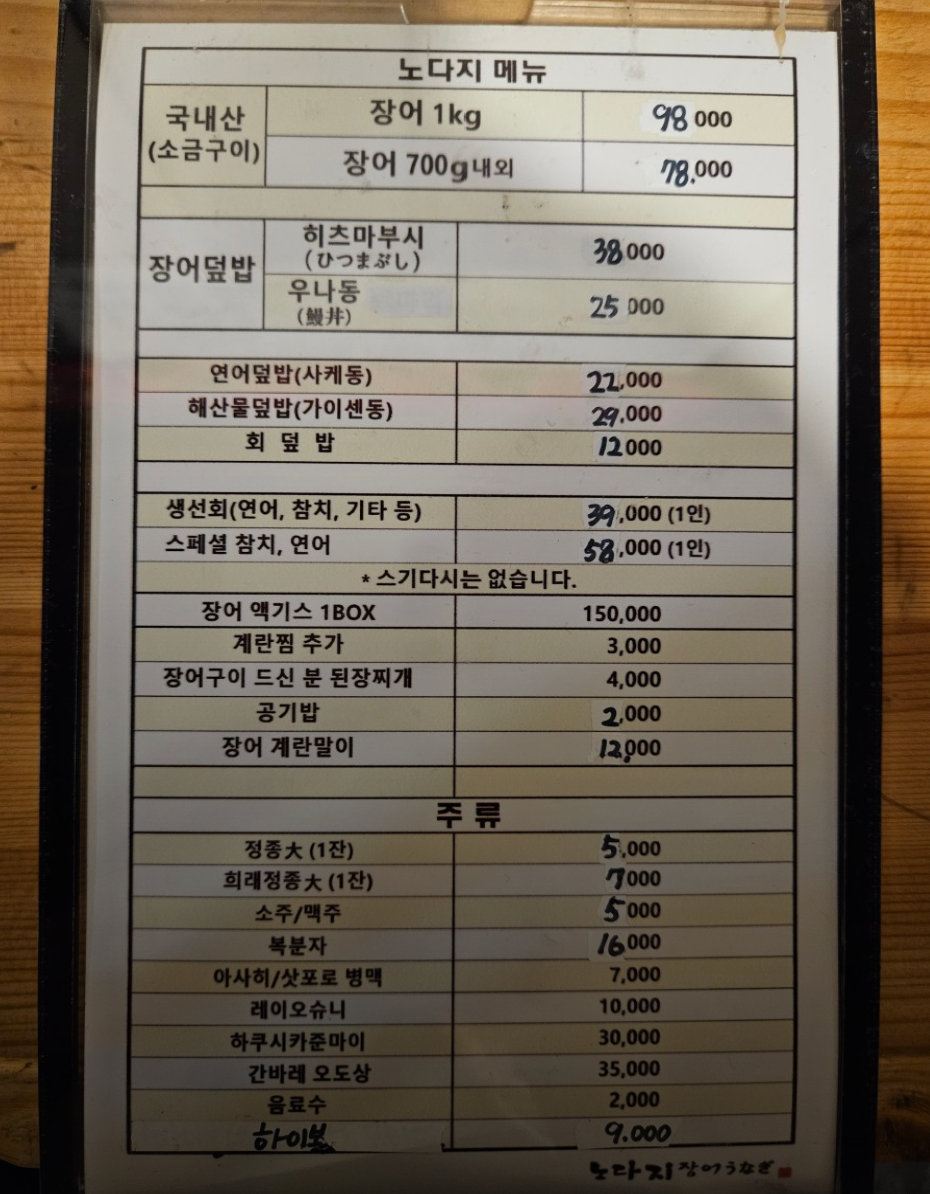 노다지 메뉴
국내산
(소금구이)
장어 1kg 98000
장어 700g내외 78.000
장어덮밥
히츠마부시
(ひつまぶし)
38000
우나동
(鰻丼)
25000
연어덮밥(사케동) 22,000
해산물덮밥(가이센동) 29,000
회 덮 밥 12000
생선회(연어, 참치, 기타 등) 39,000 (1인)
스페셜 참치, 연어 58,000 (1인)
* 스기다시는 없습니다.
장어 액기스 1BOX 150,000
계란찜 추가 3,000
장어구이 드신 분 된장찌개 4,000
공기밥 2,000
장어 계란말이 12,000
주 류
정종大 (1잔) 5,000
희래정종大 (1잔) 7000
소주/맥주 5000
복분자 16000
아사히/삿포로 병맥 7,000
레이오슈니 10,000
하쿠시카준마이 30,000
간바레 오도상 35,000
음료수 2,000
하이볼 9.000
노다지 장어うなぎ